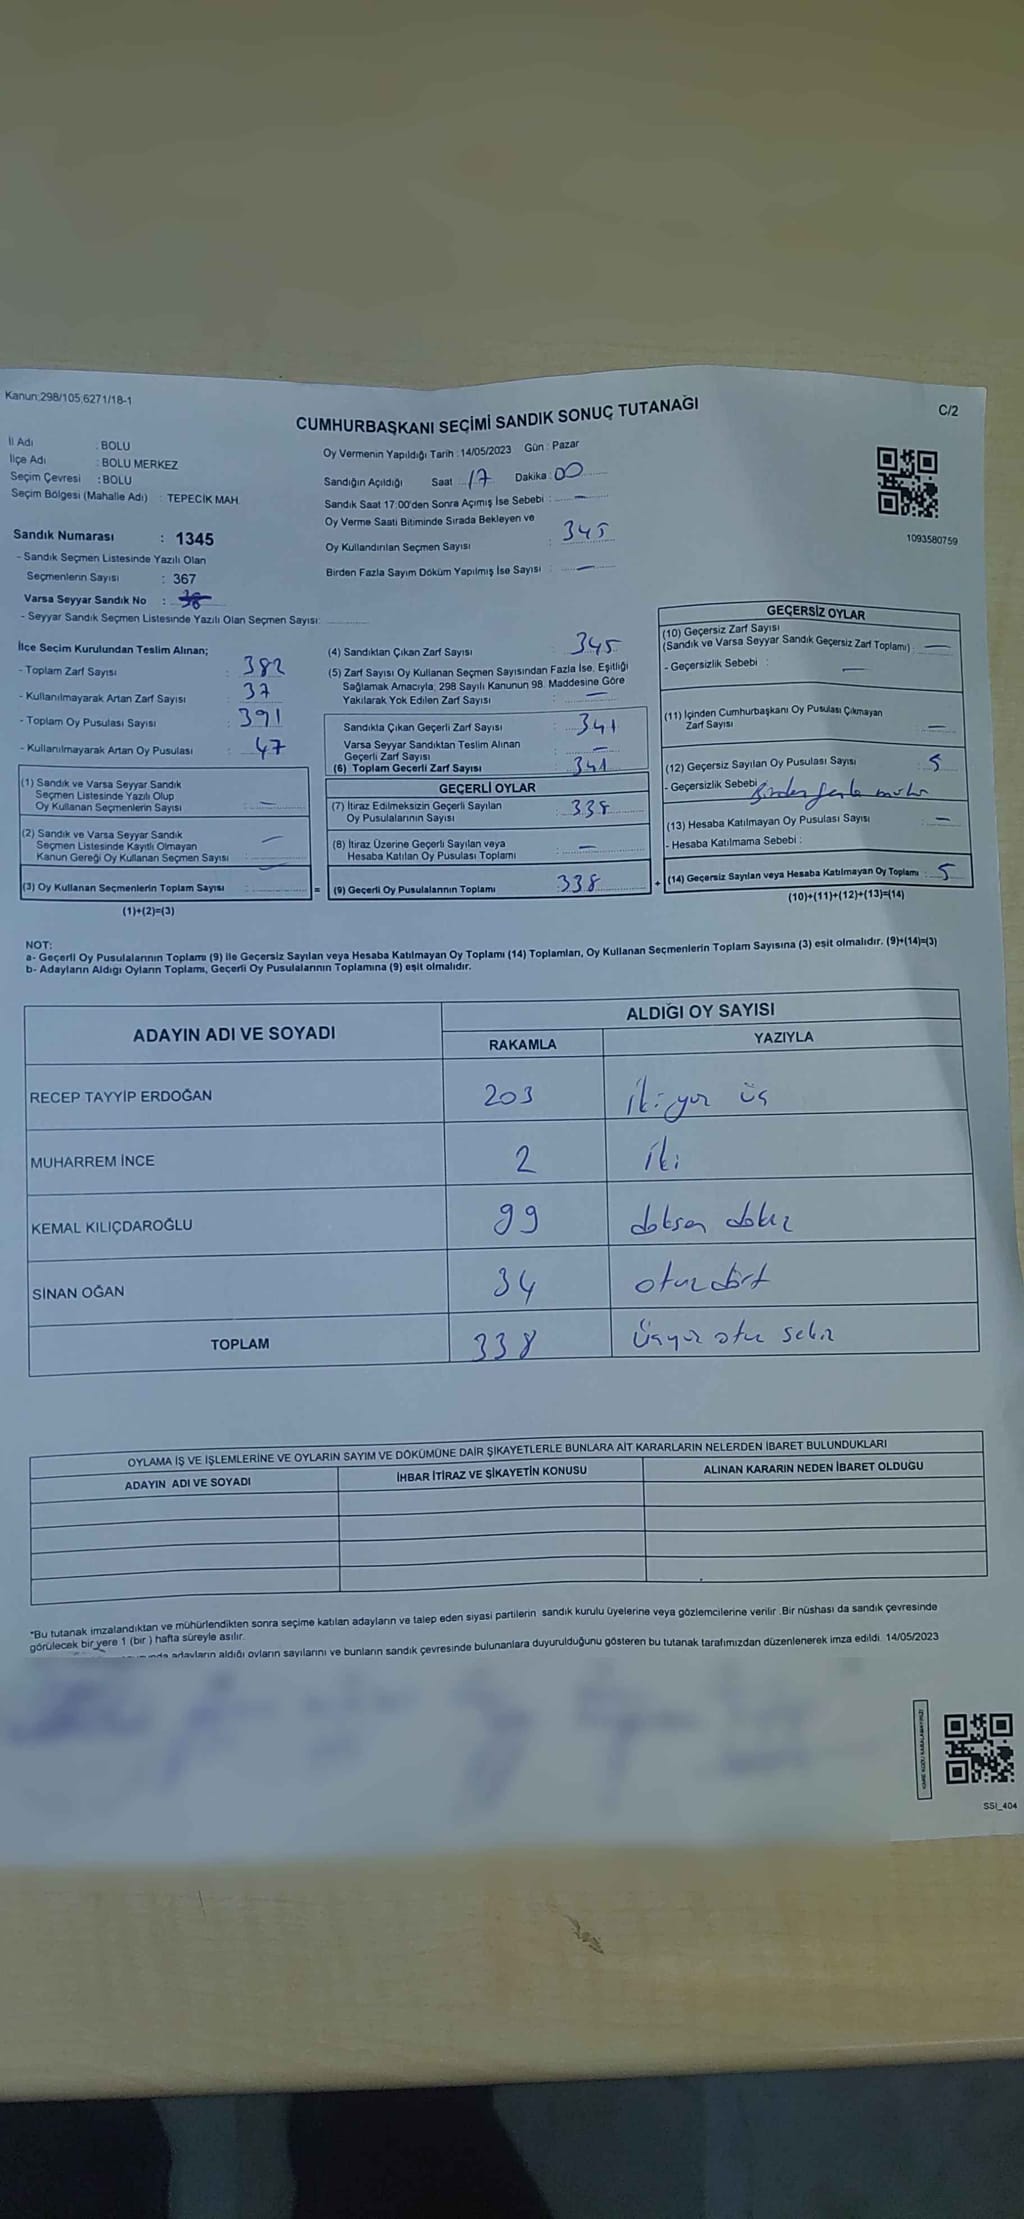 Kanun:298/105;6271/18-1
CUMHURBAŞKANI SEÇİMİ SANDIK SONUÇ TUTANAĞI
C/2
İl Adı : BOLU
İlçe Adı : BOLU MERKEZ
Seçim Çevresi : BOLU
Seçim Bölgesi (Mahalle Adı) : TEPECİK MAH.
Sandık Numarası : 1345
- Sandık Seçmen Listesinde Yazılı Olan
Seçmenlerin Sayısı : 367
Varsa Seyyar Sandık No :
- Seyyar Sandık Seçmen Listesinde Yazılı Olan Seçmen Sayısı:
Oy Vermenin Yapıldığı Tarih : 14/05/2023 Gün : Pazar
Sandığın Açıldığı Saat : 17 Dakika : 00
Sandık Saat 17:00'den Sonra Açımış İse Sebebi : —
Oy Verme Saati Bitiminde Sırada Bekleyen ve
Oy Kullandırılan Seçmen Sayısı : 345
Birden Fazla Sayım Döküm Yapılmış İse Sayısı : —
1093580759
İlçe Seçim Kurulundan Teslim Alınan;
- Toplam Zarf Sayısı : 382
- Kullanılmayarak Artan Zarf Sayısı : 37
- Toplam Oy Pusulası Sayısı : 391
- Kullanılmayarak Artan Oy Pusulası : 47
(1) Sandık ve Varsa Seyyar Sandık
Seçmen Listesinde Yazılı Olup
Oy Kullanan Seçmenlerin Sayısı : —
(2) Sandık ve Varsa Seyyar Sandık
Seçmen Listesinde Kayıtlı Olmayan
Kanun Gereği Oy Kullanan Seçmen Sayısı : —
(3) Oy Kullanan Seçmenlerin Toplam Sayısı :
(1)+(2)=(3)
=
(4) Sandıktan Çıkan Zarf Sayısı : 345
(5) Zarf Sayısı Oy Kullanan Seçmen Sayısından Fazla İse, Eşitliği
Sağlamak Amacıyla, 298 Sayılı Kanunun 98. Maddesine Göre
Yakılarak Yok Edilen Zarf Sayısı : —
Sandıkta Çıkan Geçerli Zarf Sayısı : 341
Varsa Seyyar Sandıktan Teslim Alınan
Geçerli Zarf Sayısı : —
(6) Toplam Geçerli Zarf Sayısı : 341
GEÇERLİ OYLAR
(7) İtiraz Edilmeksizin Geçerli Sayılan
Oy Pusulalarının Sayısı : 338
(8) İtiraz Üzerine Geçerli Sayılan veya
Hesaba Katılan Oy Pusulası Toplamı : —
(9) Geçerli Oy Pusulalarının Toplamı : 338
+
GEÇERSİZ OYLAR
(10) Geçersiz Zarf Sayısı
(Sandık ve Varsa Seyyar Sandık Geçersiz Zarf Toplamı) : —
- Geçersizlik Sebebi : —
(11) İçinden Cumhurbaşkanı Oy Pusulası Çıkmayan
Zarf Sayısı : —
(12) Geçersiz Sayılan Oy Pusulası Sayısı : 5
- Geçersizlik Sebebi : Birden fazla mühür
(13) Hesaba Katılmayan Oy Pusulası Sayısı : —
- Hesaba Katılmama Sebebi :
(14) Geçersiz Sayılan veya Hesaba Katılmayan Oy Toplamı : 5
(10)+(11)+(12)+(13)=(14)
NOT:
a- Geçerli Oy Pusulalarının Toplamı (9) ile Geçersiz Sayılan veya Hesaba Katılmayan Oy Toplamı (14) Toplamları, Oy Kullanan Seçmenlerin Toplam Sayısına (3) eşit olmalıdır. (9)+(14)=(3)
b- Adayların Aldığı Oyların Toplamı, Geçerli Oy Pusulalarının Toplamına (9) eşit olmalıdır.
ADAYIN ADI VE SOYADI
ALDIĞI OY SAYISI
RAKAMLA YAZIYLA
RECEP TAYYİP ERDOĞAN 203 iki yüz üç
MUHARREM İNCE 2 iki
KEMAL KILIÇDAROĞLU 99 doksan dokuz
SİNAN OĞAN 34 otuz dört
TOPLAM 338 Üçyüz otuz sekiz
OYLAMA İŞ VE İŞLEMLERİNE VE OYLARIN SAYIM VE DÖKÜMÜNE DAİR ŞİKAYETLERLE BUNLARA AİT KARARLARIN NELERDEN İBARET BULUNDUKLARI
ADAYIN ADI VE SOYADI İHBAR İTİRAZ VE ŞİKAYETİN KONUSU ALINAN KARARIN NEDEN İBARET OLDUĞU
*Bu tutanak imzalandıktan ve mühürlendikten sonra seçime katılan adayların ve talep eden siyasi partilerin sandık kurulu üyelerine veya gözlemcilerine verilir. Bir nüshası da sandık çevresinde
görülecek bir yere 1 (bir ) hafta süreyle asılır.
adayların aldığı oyların sayılarını ve bunların sandık çevresinde bulunanlara duyurulduğunu gösteren bu tutanak tarafımızdan düzenlenerek imza edildi. 14/05/2023
SSI_404